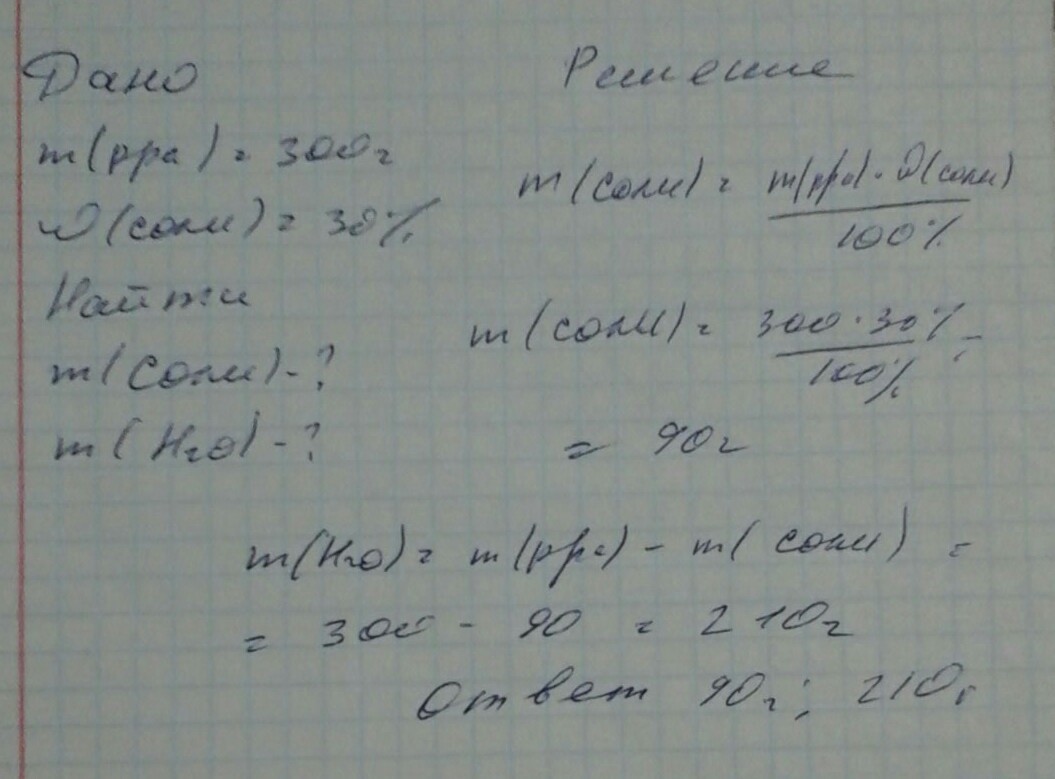 Дано
m(рра) = 300г
ω(соли) = 30%
Найти
m(Соли)-?
m(H₂O)-?
Решение
m(соли) = m(рра)·ω(соли)
100%
m(соли) = 300·30% =
100%
= 90г
m(H₂O) = m(рра) - m(соли) =
= 300 - 90 = 210г
Ответ 90г; 210г